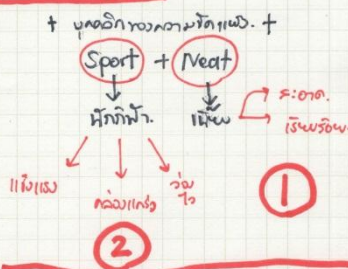 + บุคลิกของความขัดแย้ง. +
Sport + Neat
นักกีฬา. เนี๊ยบ สะอาด.
เรียบร้อย.
แข็งแรง คล่องแคล่ว ว่องไว
1
2